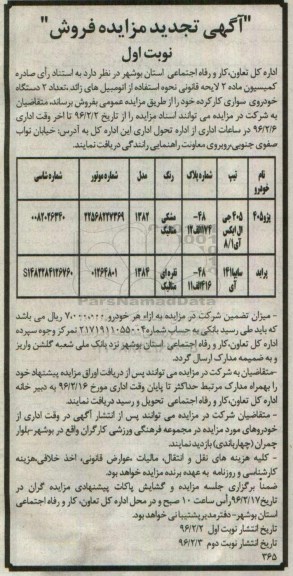 "آگهی تجدید مزایده فروش"
نوبت اول
اداره کل تعاون،کار و رفاه اجتماعی استان بوشهر در نظر دارد به استناد رأی صادره
کمیسیون ماده ۲ لایحه قانونی نحوه استفاده از اتومبیل های زائد ،تعداد ۲ دستگاه
خودروی سواری کارکرده خود را از طریق مزایده عمومی بفروش برساند، متقاضیان
به شرکت در مزایده می توانند اسناد مزایده را از تاریخ ۹۶/۲/۲ تا آخر وقت اداری
۹۶/۲/۶ در ساعات اداری از اداره تحول اداری این اداره کل به آدرس: خیابان نواب
صفوی جنوبی،روبروی معاونت راهنمایی رانندگی دریافت نمایند.
نام خودرو تیپ شماره پلاک رنگ مدل شماره موتور شماره شاسی
پژو۴۰۵ ۴۰۵ جی ال ایکس آی۱/۸ ۴۸- ۱۷۴الف۱۲ مشکی متالیک ۱۳۸۲ ۲۲۵۶۸۲۲۷۳۶۹ ۰۰۸۲۰۲۶۳۴۰
پراید سایپا۱۴۱ آی ۴۸- ۴۱۶الف۱۱ نقره ای متالیک ۱۳۸۴ ۰۱۲۶۴۸۰۱ S۱۴۸۲۲۸۴۱۲۶۷۶۰
- میزان تضمین شرکت در مزایده به ازاء هر خودرو ۷/۰۰۰/۰۰۰ ریال می باشد
که باید طی رسید بانکی به حساب شماره۲۱۷۱۹۱۱۰۵۵۰۰۴ تمرکز وجوه سپرده
اداره کل تعاون،کار و رفاه اجتماعی استان بوشهر نزد بانک ملی شعبه گلشن واریز
و به ضمیمه مدارک ارسال گردد.
-متقاضیان به شرکت در مزایده می توانند پس از دریافت اوراق مزایده پیشنهاد خود
را بهمراه مدارک مرتبط حداکثر تا پایان وقت اداری مورخ ۹۶/۲/۱۶ به دبیر خانه
اداره کل تعاون،کار و رفاه اجتماعی تحویل و رسید دریافت نمایند.
- متقاضیان شرکت در مزایده می توانند پس از انتشار آگهی در وقت اداری از
خودروهای مورد مزایده در مجموعه فرهنگی ورزشی کارگران واقع در بوشهر-بلوار
چمران (چهاربالغدی) بازدید نمایند.
- کلیه هزینه های نقل و انتقال، مالیات ،عوارض قانونی، اخذ خلافی،هزینه
کارشناسی و روزنامه به عهده برنده مزایده خواهد بود.
ضمناً برگزاری جلسه مزایده و گشایش پاکات پیشنهادی مزایده گران در
تاریخ۹۶/۲/۱۷رأس ساعت ۱۰ صبح و در محل اداره کل تعاون، کار و رفاه اجتماعی
استان بوشهر- دفترمدیرپشتیبانی خواهد بود.
تاریخ انتشار نوبت اول ۹۶/۲/۲
تاریخ انتشار نوبت دوم ۹۶/۲/۳
۳۶۵